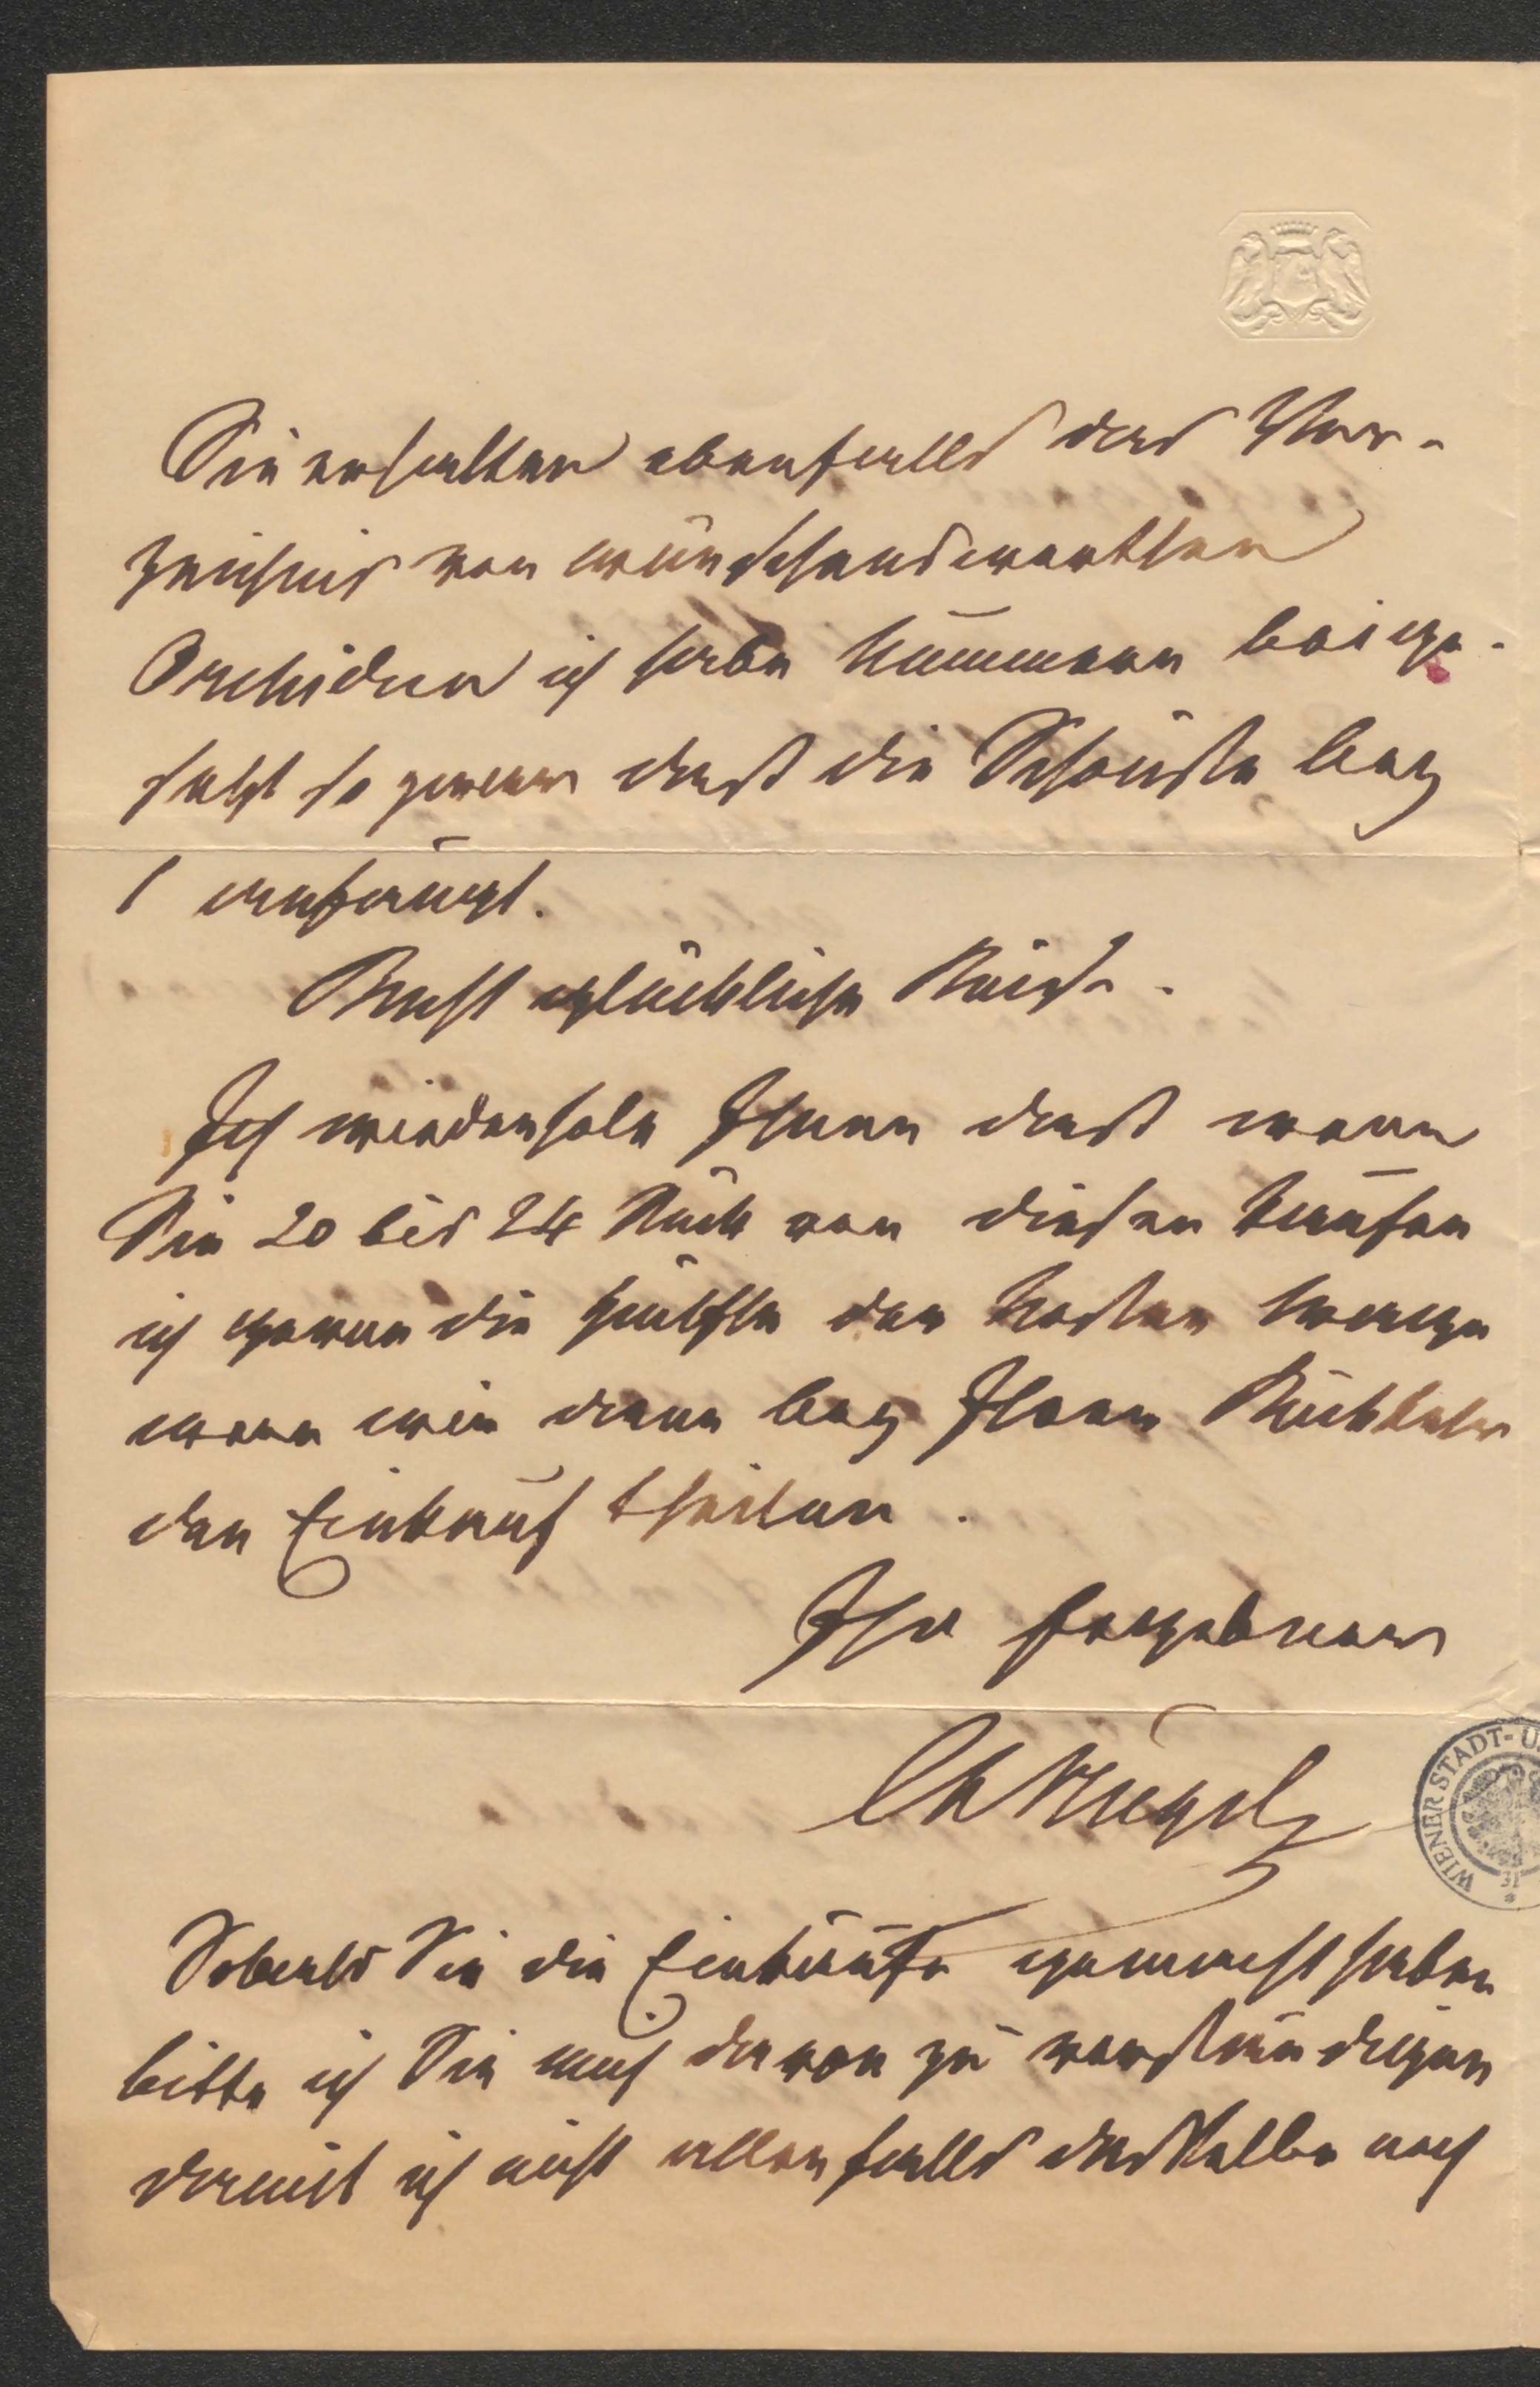 Sie erhalten ebenfalls das Ver-
zeichnis von wünschenswerthen
Orchideen ich habe Nummern beige-
setzt so zwar daß die Schönste bey
1 anfängt.
Recht glückliche Reise.
Ich wiederhole Ihnen daß wenn
Sie 20 bis 24 Stück von diesen kaufen
ich gerne die Hälfte der Kosten trage
wenn wir dann bey Ihrer Rückkehr
den Einkauf theilen.
Ihr Ergebener
ChHügel
Sobald Sie die Einkäufe gemacht haben
bitte ich Sie mich davon zu verständigen
damit ich nicht allenfalls dasselbe noch
WIENER STADT-U.